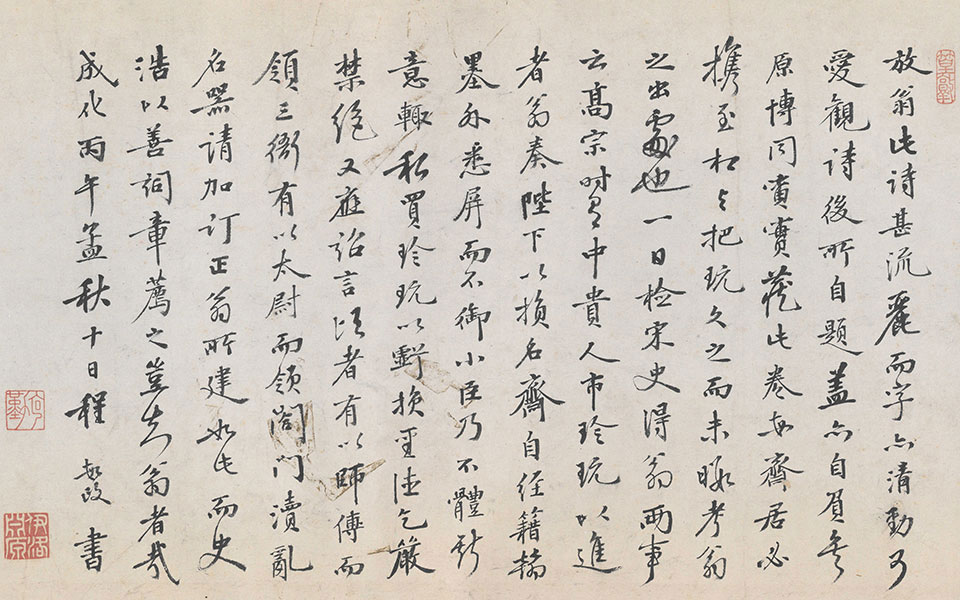 放翁此詩甚流麗而字亦清勁可
愛觀詩後所自題蓋亦自負矣
原博同寅寶藏此卷每齋居必
携至相與把玩久之而未暇考翁
之出處也一日檢宋史得翁兩事
云髙宗時有中貴人市珍玩以進
者翁奏陛下以損名齋自經籍翰
墨外悉屏而不御小臣乃不體聖
意輒私買珍玩以虧損聖德乞嚴
禁絶又應詔言頃者有以師傅而
領三衙有以太尉而領閤門瀆亂
名器請加訂正翁所建如此而史
浩以善詞章薦之豈知翁者哉
成化丙午孟秋十日程敏政書